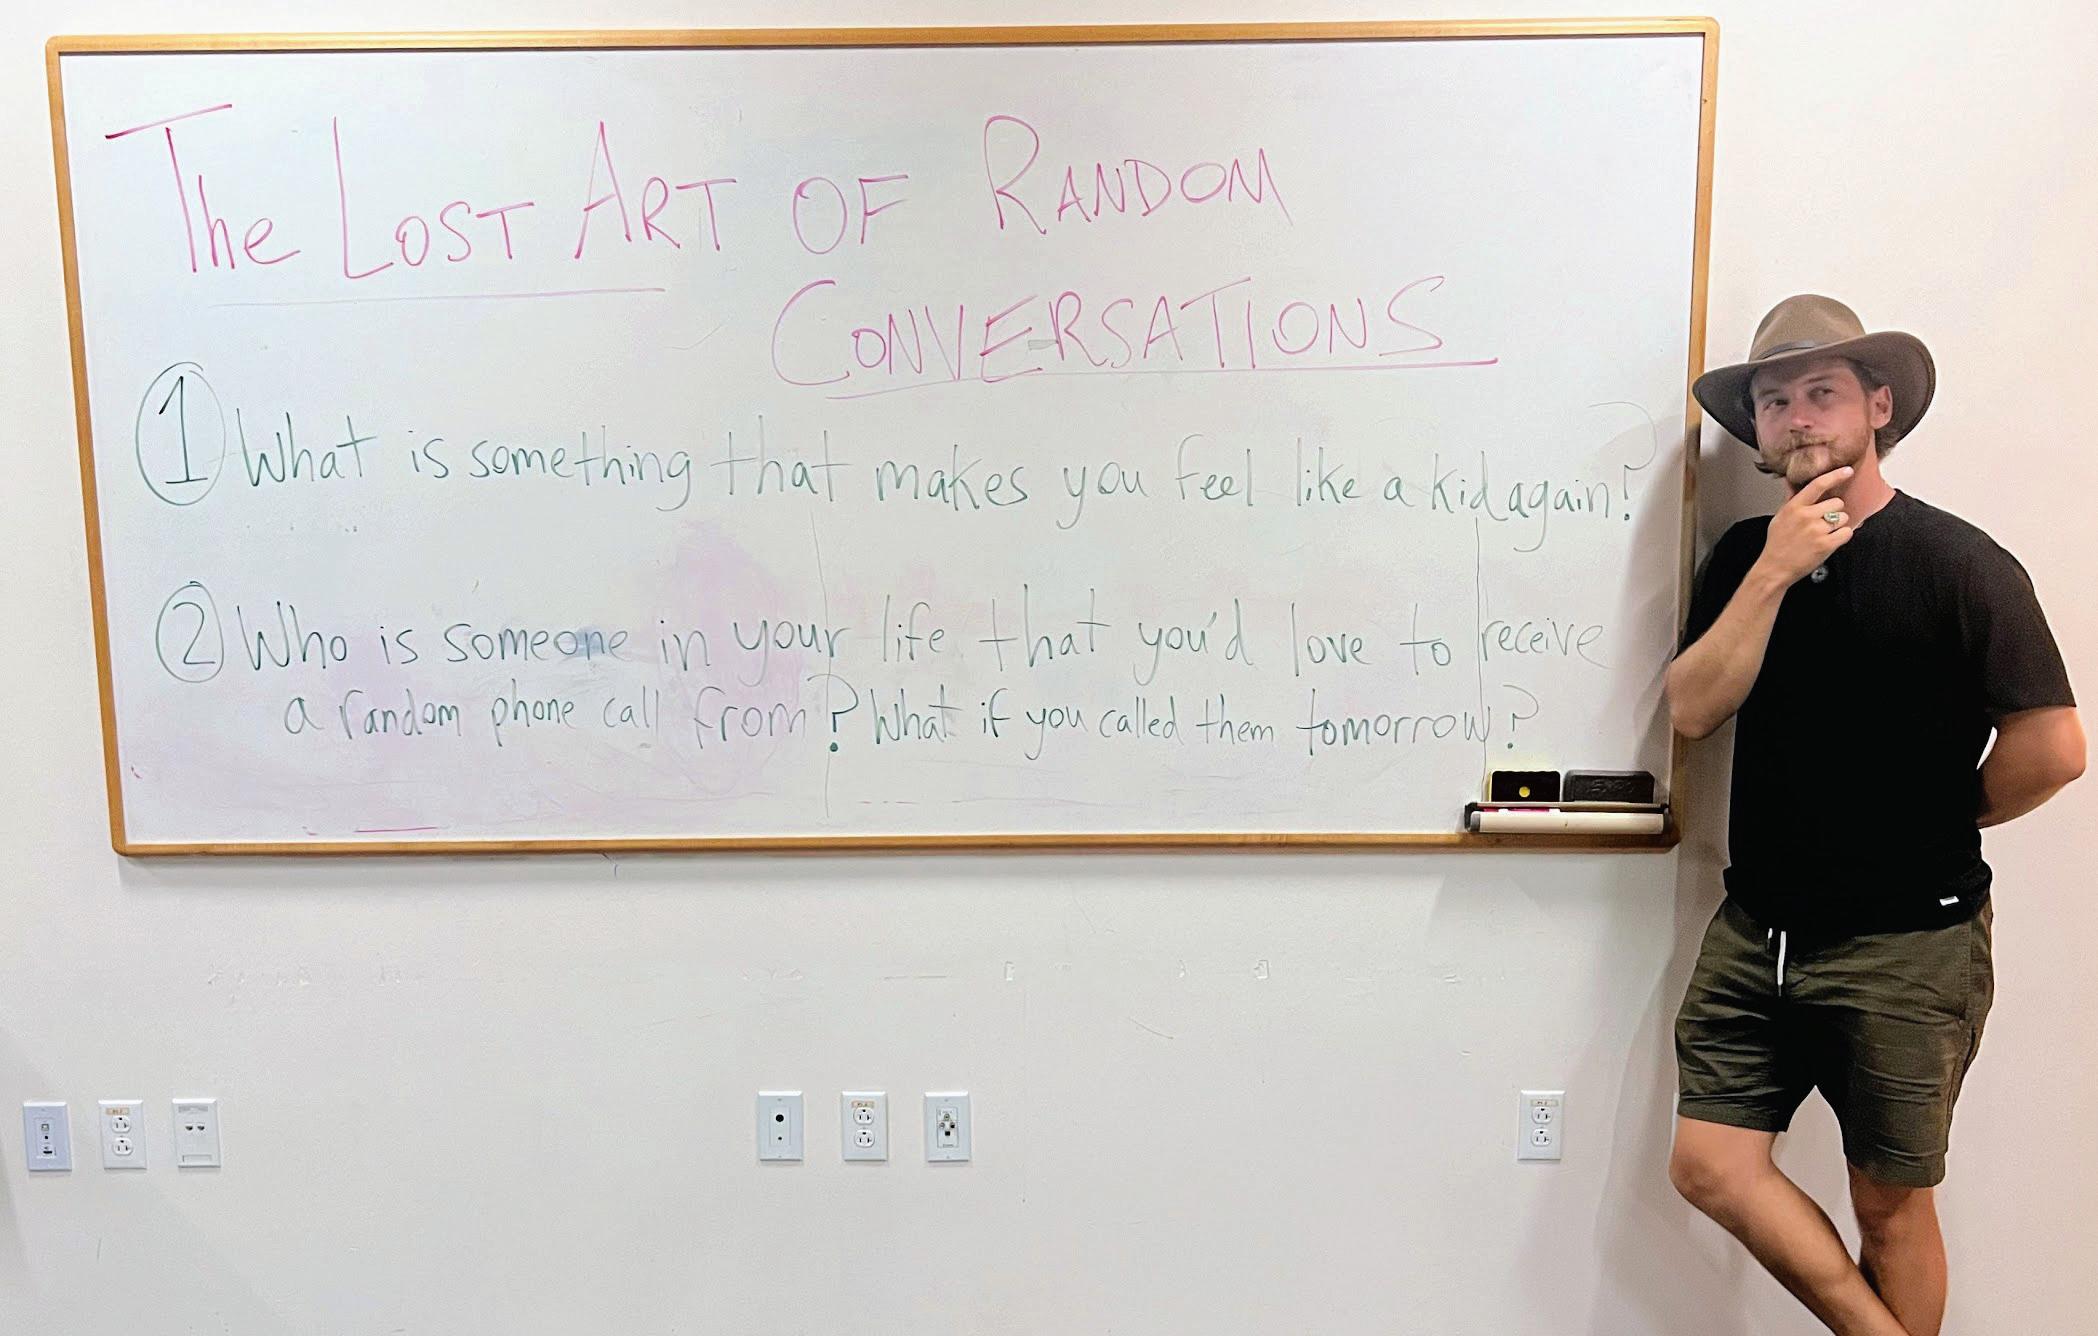 The Lost Art of Random
Conversations
1 What is something that makes you feel like a kid again?
2 Who is someone in your life that you'd love to receive
a random phone call from? What if you called them tomorrow?
EXPO